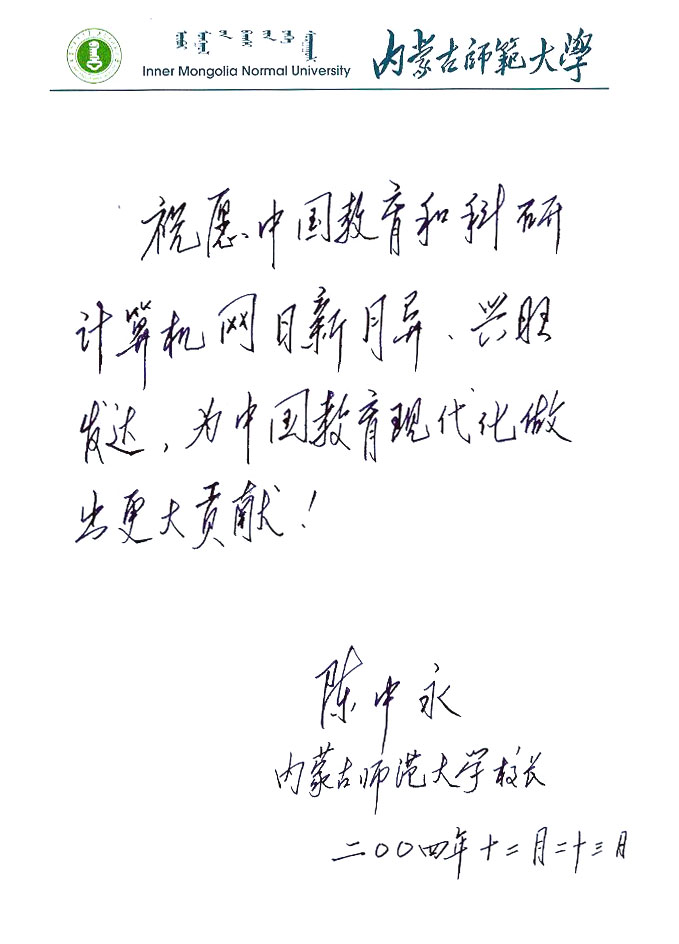 Inner Mongolia Normal University
内蒙古師範大學
祝愿中国教育和科研
计算机网日新月异、兴旺
发达，为中国教育现代化做
出更大贡献！
陈中永
内蒙古师范大学校长
二〇〇四年十二月二十三日